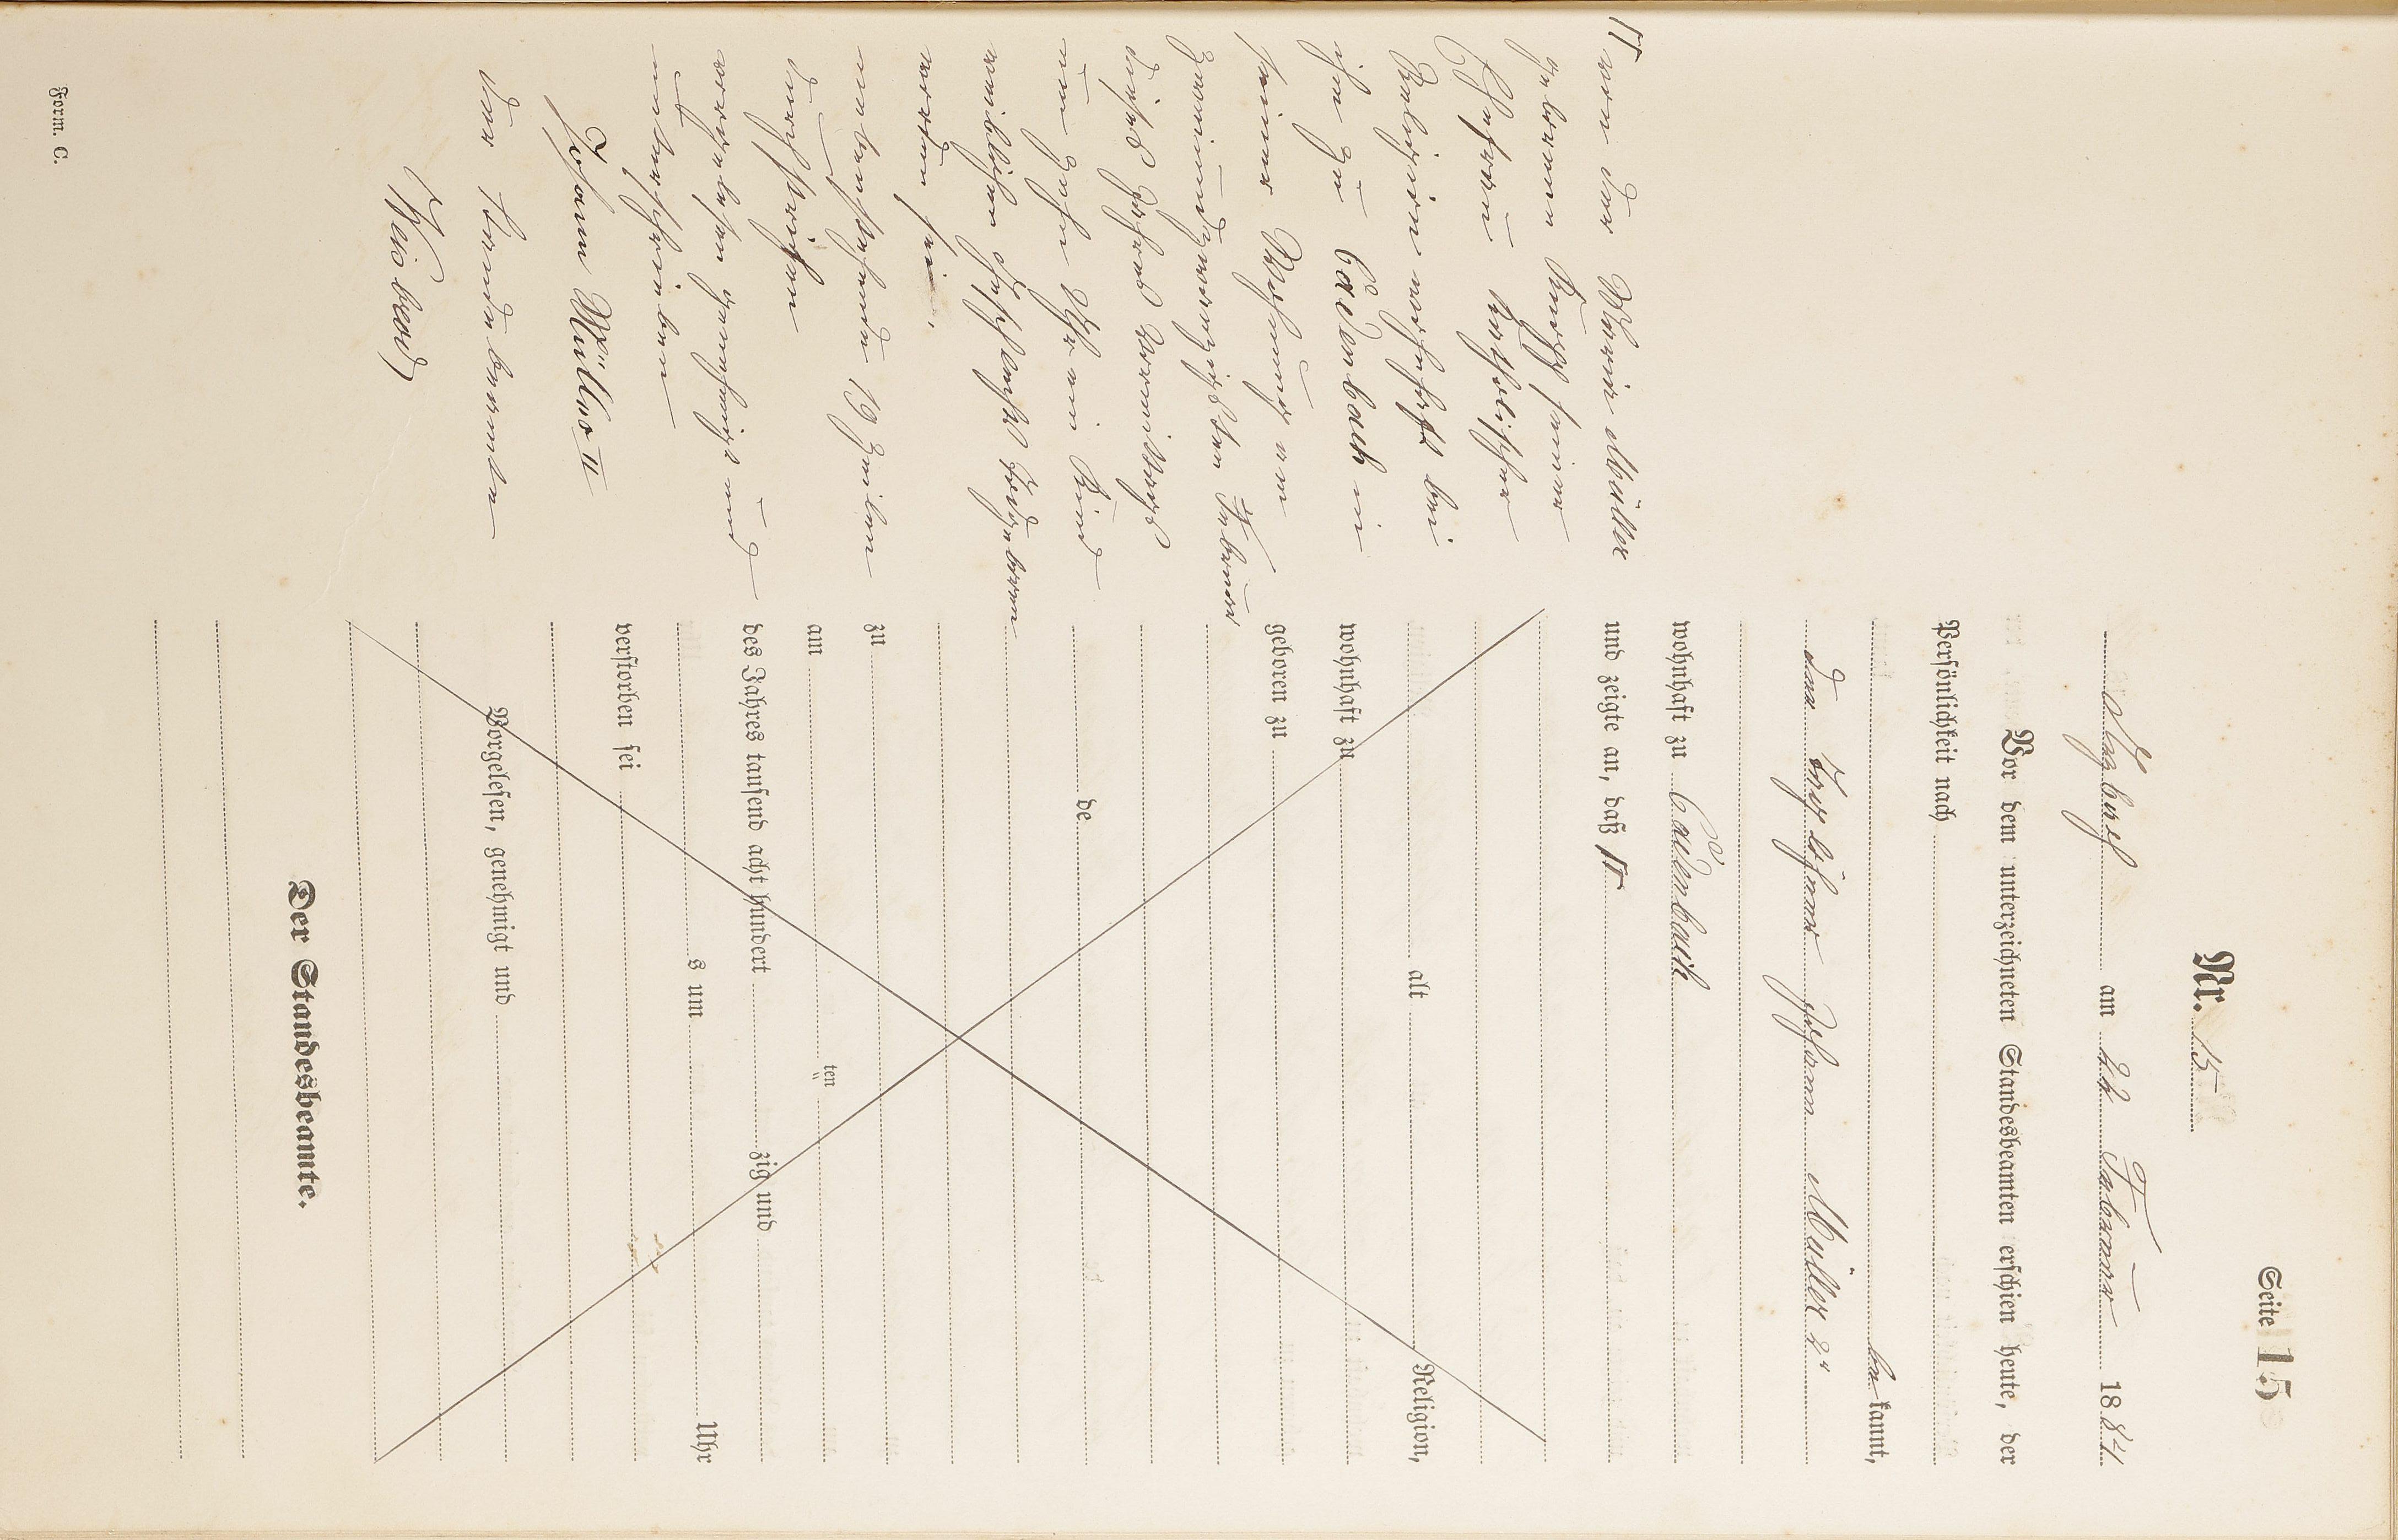 Seite 15
Nr. 15
am 22 Februar 1884
Vor dem unterzeichneten Standesbeamten erschien heute, der
Persönlichkeit nach
bekannt,
der Tagelöhner Johann Müller 2r
wohnhaft zu Cadenbach
und zeigte an, daß
alt Religion,
wohnhaft zu
geboren zu
de
zu
am ten
des Jahres tausend acht hundert zig und
s um Uhr
verstorben sei
Vorgelesen, genehmigt und
Der Standesbeamte.
von der Maria Müller
geborene seiner
Ehefrau katholischer
Religion wohnhaft bei
ihm zu Cadenbach in
seiner Wohnung am
einundzwanzigsten Februar
dieses Jahres vormittags
um zehn Uhr ein Kind
weiblichen Geschlechts todtgeboren
worden sei.
untenstehende 19 Zeilen
durchstrichen
vorgelesen genehmigt und
unterschrieben
Johann Müller II
der Standesbeamte
Form. C.